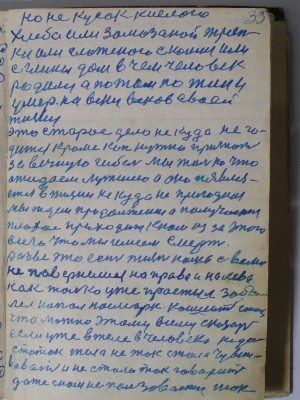 35
но не кусок кислого
хлеба или замазаной тряпки
ки или сложеного с камня или
с глины дом в чем человек
родили а потом пожил и
умер на веки веков а своей
жизни
это старое дело некуда не го-
дится кроме как нужно принять
за вечную гибел мы только что
ожидаем лучшего а оно появляе-
ется в жизни некуда не пригодная
мы ждем продолжения а получаем
плохое приходит к нам из за этого
дела что мы имеем смерть.
разве это есть жизнь наша с вами
не повернешся на права и налева
как только уже простыл забо-
лел напал насморк кашель
что можно этому делу сказать
если уже в теле в человека недо-
статок тела не так стало чувст-
вовать и не стало так говорить
даже сном не пользоваться так